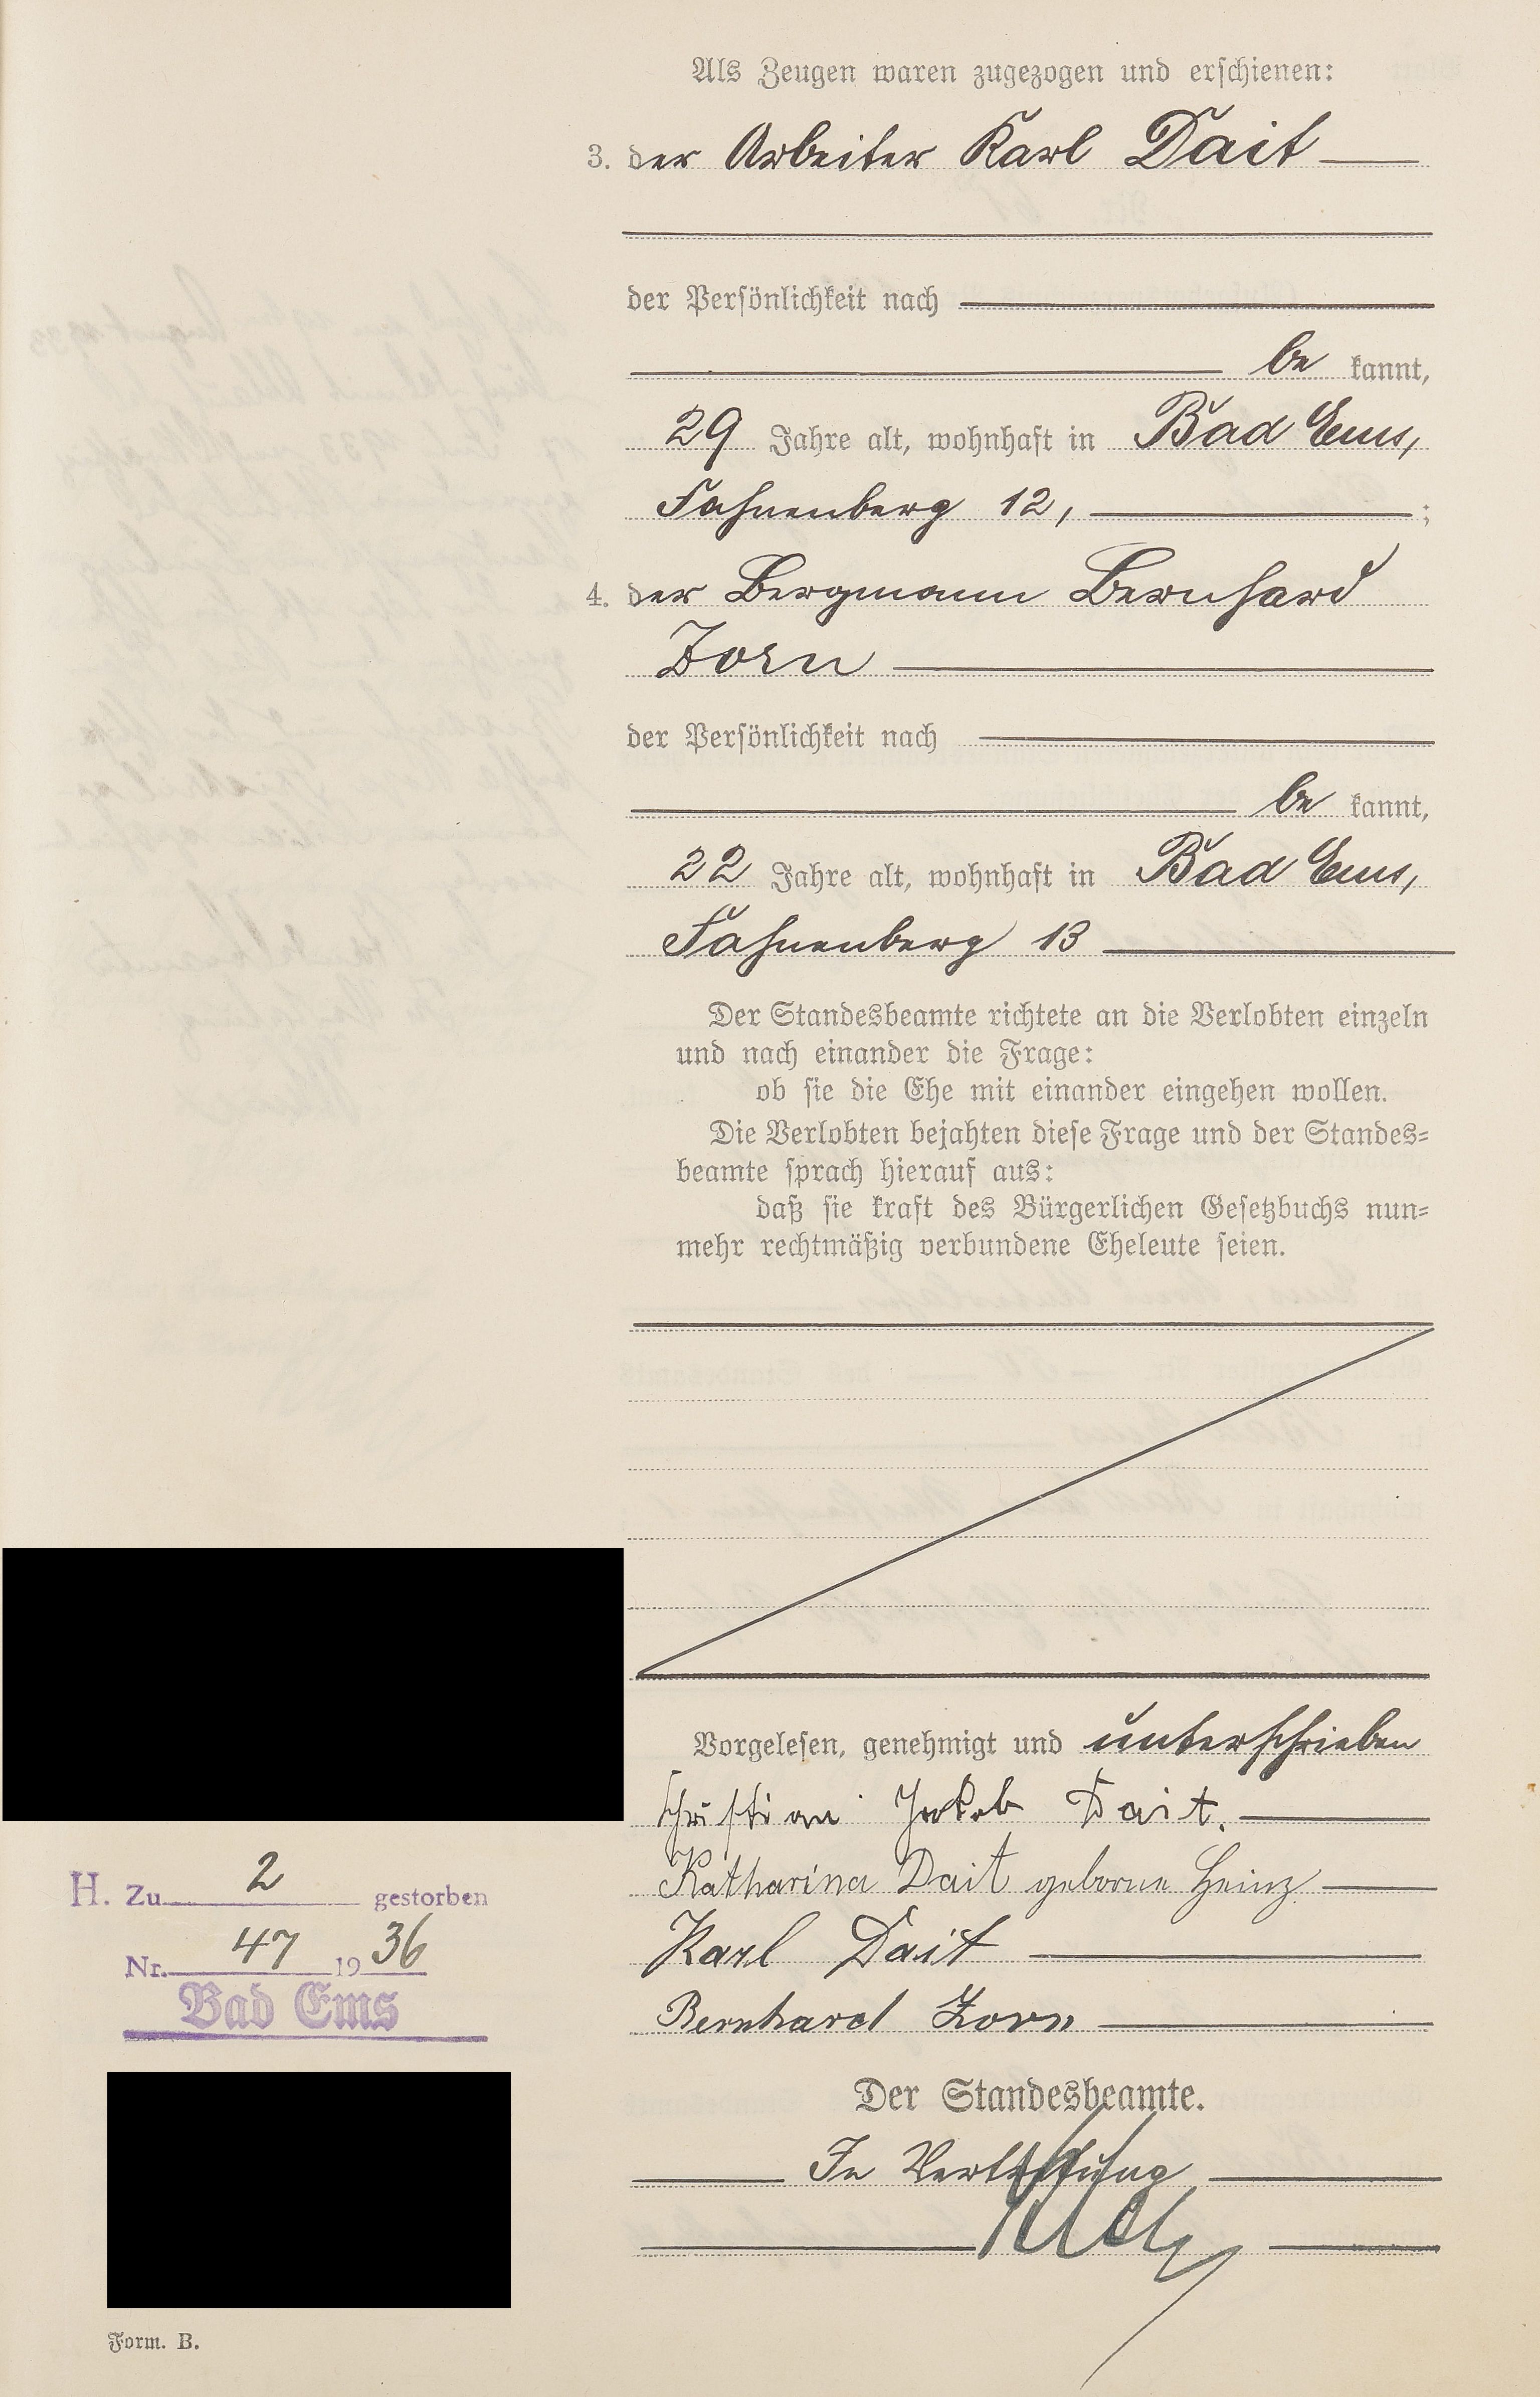 Als Zeugen waren zugezogen und erschienen:
3. der Arbeiter Karl Dait
der Persönlichkeit nach
be kannt,
29 Jahre alt, wohnhaft in Bad Ems,
Fahnenberg 12, ;
4. der Bergmann Bernhard
Zorn
der Persönlichkeit nach
be kannt,
22 Jahre alt, wohnhaft in Bad Ems,
Fahnenberg 13
Der Standesbeamte richtete an die Verlobten einzeln
und nach einander die Frage:
ob sie die Ehe mit einander eingehen wollen.
Die Verlobten bejahten diese Frage und der Standes-
beamte sprach hierauf aus:
daß sie kraft des Bürgerlichen Gesetzbuchs nun-
mehr rechtmäßig verbundene Eheleute seien.
Vorgelesen, genehmigt und unterschrieben
Christian Jakob Dait.
Katharina Dait geborne Heinz
Karl Dait
Bernhard Zorn
Der Standesbeamte.
In Vertretung
H. Zu 2 gestorben
Nr. 47 19 36
Bad Ems
Form. B.